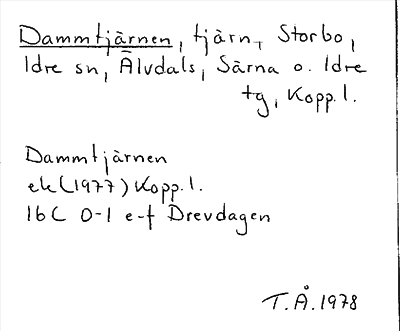 Dammtjärnen, tjärn, Storbo,
Idre sn, Älvdals, Särna o. Idre
tg, Kopp.l.
Dammtjärnen
ek (1977) Kopp.l.
16C 0-1 e-f Drevdagen
T.Å.1978